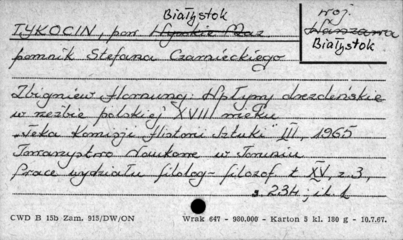 Białystok
TYKOCIN, pow. Wysokie Maz.
woj.
Warszawa
Białystok
pomnik Stefana Czarnieckiego
Zbigniew Hornung: Wpływy drezdeńskie
w rzeźbie polskiej XVIII wieku
"Teka Komisji Historii Sztuki" III, 1965
Towarzystwo Naukowe w Toruniu
Prace wydziału filolog-filozof. t XV, z.3,
s. 234; il. 1
CWD B 15b Zam. 915/DW/ON Wrak 647 - 980.000 - Karton 5 kl. 180 g - 10.7.67.